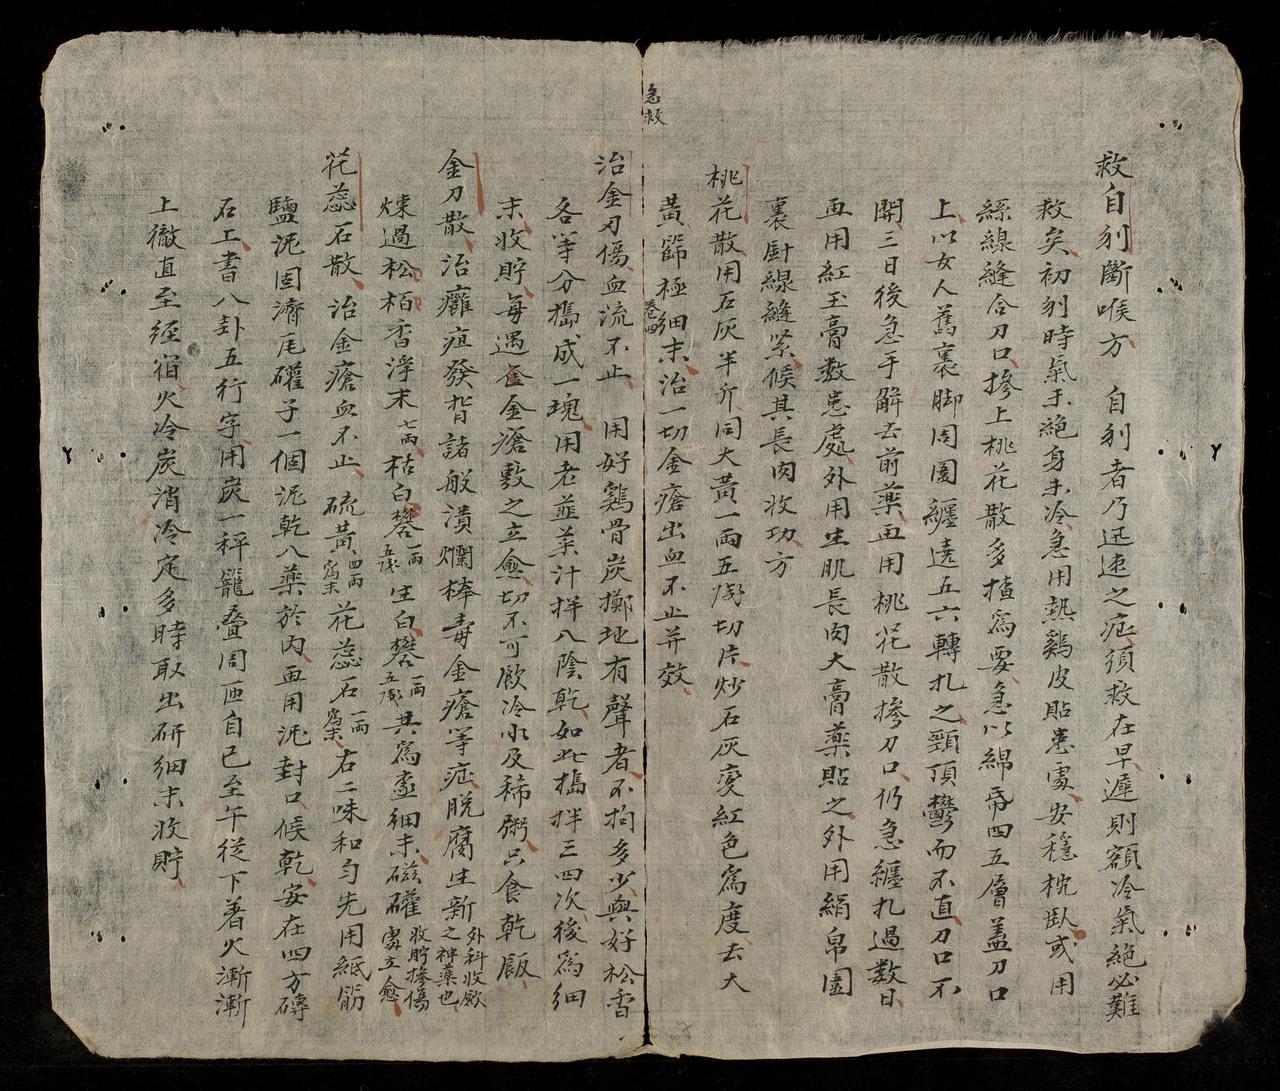 救自刎斷喉方 自刎者乃迅速之症須救在早遲則額冷氣絕必難
救矣初刎時氣未絕身未冷急用熱鷄皮貼患處安穩枕臥或用
絲線縫合刀口摻上桃花散多揸爲要急以綿帛四五層蓋刀口
上以女人舊裹脚周圍纏遶五六轉扎之頸頂鬱而不直刀口不
開三日後急手解去前藥再用桃花散摻刀口仍急纏扎過數日
再用紅玉膏敷患處外用生肌長肉大膏藥貼之外用絹帛圍
裹厨線縫緊候其長肉收功方
桃花散用石灰半斤同大黃一兩五戔切片炒石灰變紅色爲度去大
黃篩極細末治一切金瘡出血不止并效
急救
卷四
治金刃傷血流不止 用好鷄骨炭擲地有聲者不拘多少與好松香
各等分搗成一塊用老韮菜汁拌入陰乾如此搗拌三四次後爲細
末收貯每遇金瘡敷之立愈切不可飲冷水及稀粥只食乾飯
金刀散治癰疽發背諸般潰爛棒毒金瘡等症脫腐生新外科收歛之神藥也
煉過松栢香淨末七兩枯白礬一兩五戔生白礬一兩五戔共爲極細末磁礶收貯摻傷處立愈
花蕊石散治金瘡血不止 硫黃四兩爲末花蕊石一兩爲末右二味和勻先用紙筋
鹽泥固濟瓦礶子一個泥乾入藥於內再用泥封口候乾安在四方磚
石上書八卦五行字用炭一秤籠疊周匝自巳至午從下着火漸漸
上徹直至經宿火冷炭消冷定多時取出研細末收貯